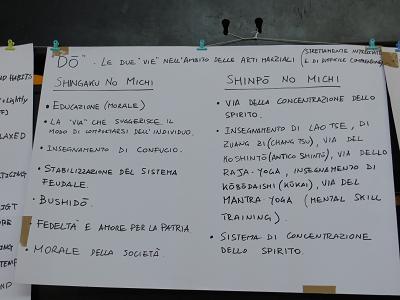 "DŌ" - LE DUE "VIE" NELL'AMBITO DELLE ARTI MARZIALI (STRETTAMENTE INTRECCIATE
E DI DIFFICILE COMPRENSIONE)
SHINGAKU NO MICHI
• EDUCAZIONE (MORALE)
• LA "VIA" CHE SUGGERISCE IL
MODO DI COMPORTARSI DELL'INDIVIDUO.
• INSEGNAMENTO DI CONFUCIO.
• STABILIZZAZIONE DEL SISTEMA
FEUDALE.
• BUSHIDŌ.
• FEDELTA' E AMORE PER LA PATRIA
• MORALE DELLA SOCIETA'.
SHINPŌ NO MICHI
• VIA DELLA CONCENTRAZIONE DELLO
SPIRITO.
• INSEGNAMENTO DI LAO TSE, DI
ZUANG ZI (CHANG TSU), VIA DEL
KOSHINTŌ (ANTICO SHINTŌ), VIA DELLO
RAJA-YOGA, INSEGNAMENTO DI
KŌBŌDAISHI (KŪKAI), VIA DEL
MANTRA YOGA (MENTAL SKILL
TRAINING).
• SISTEMA DI CONCENTRAZIONE
DELLO SPIRITO.